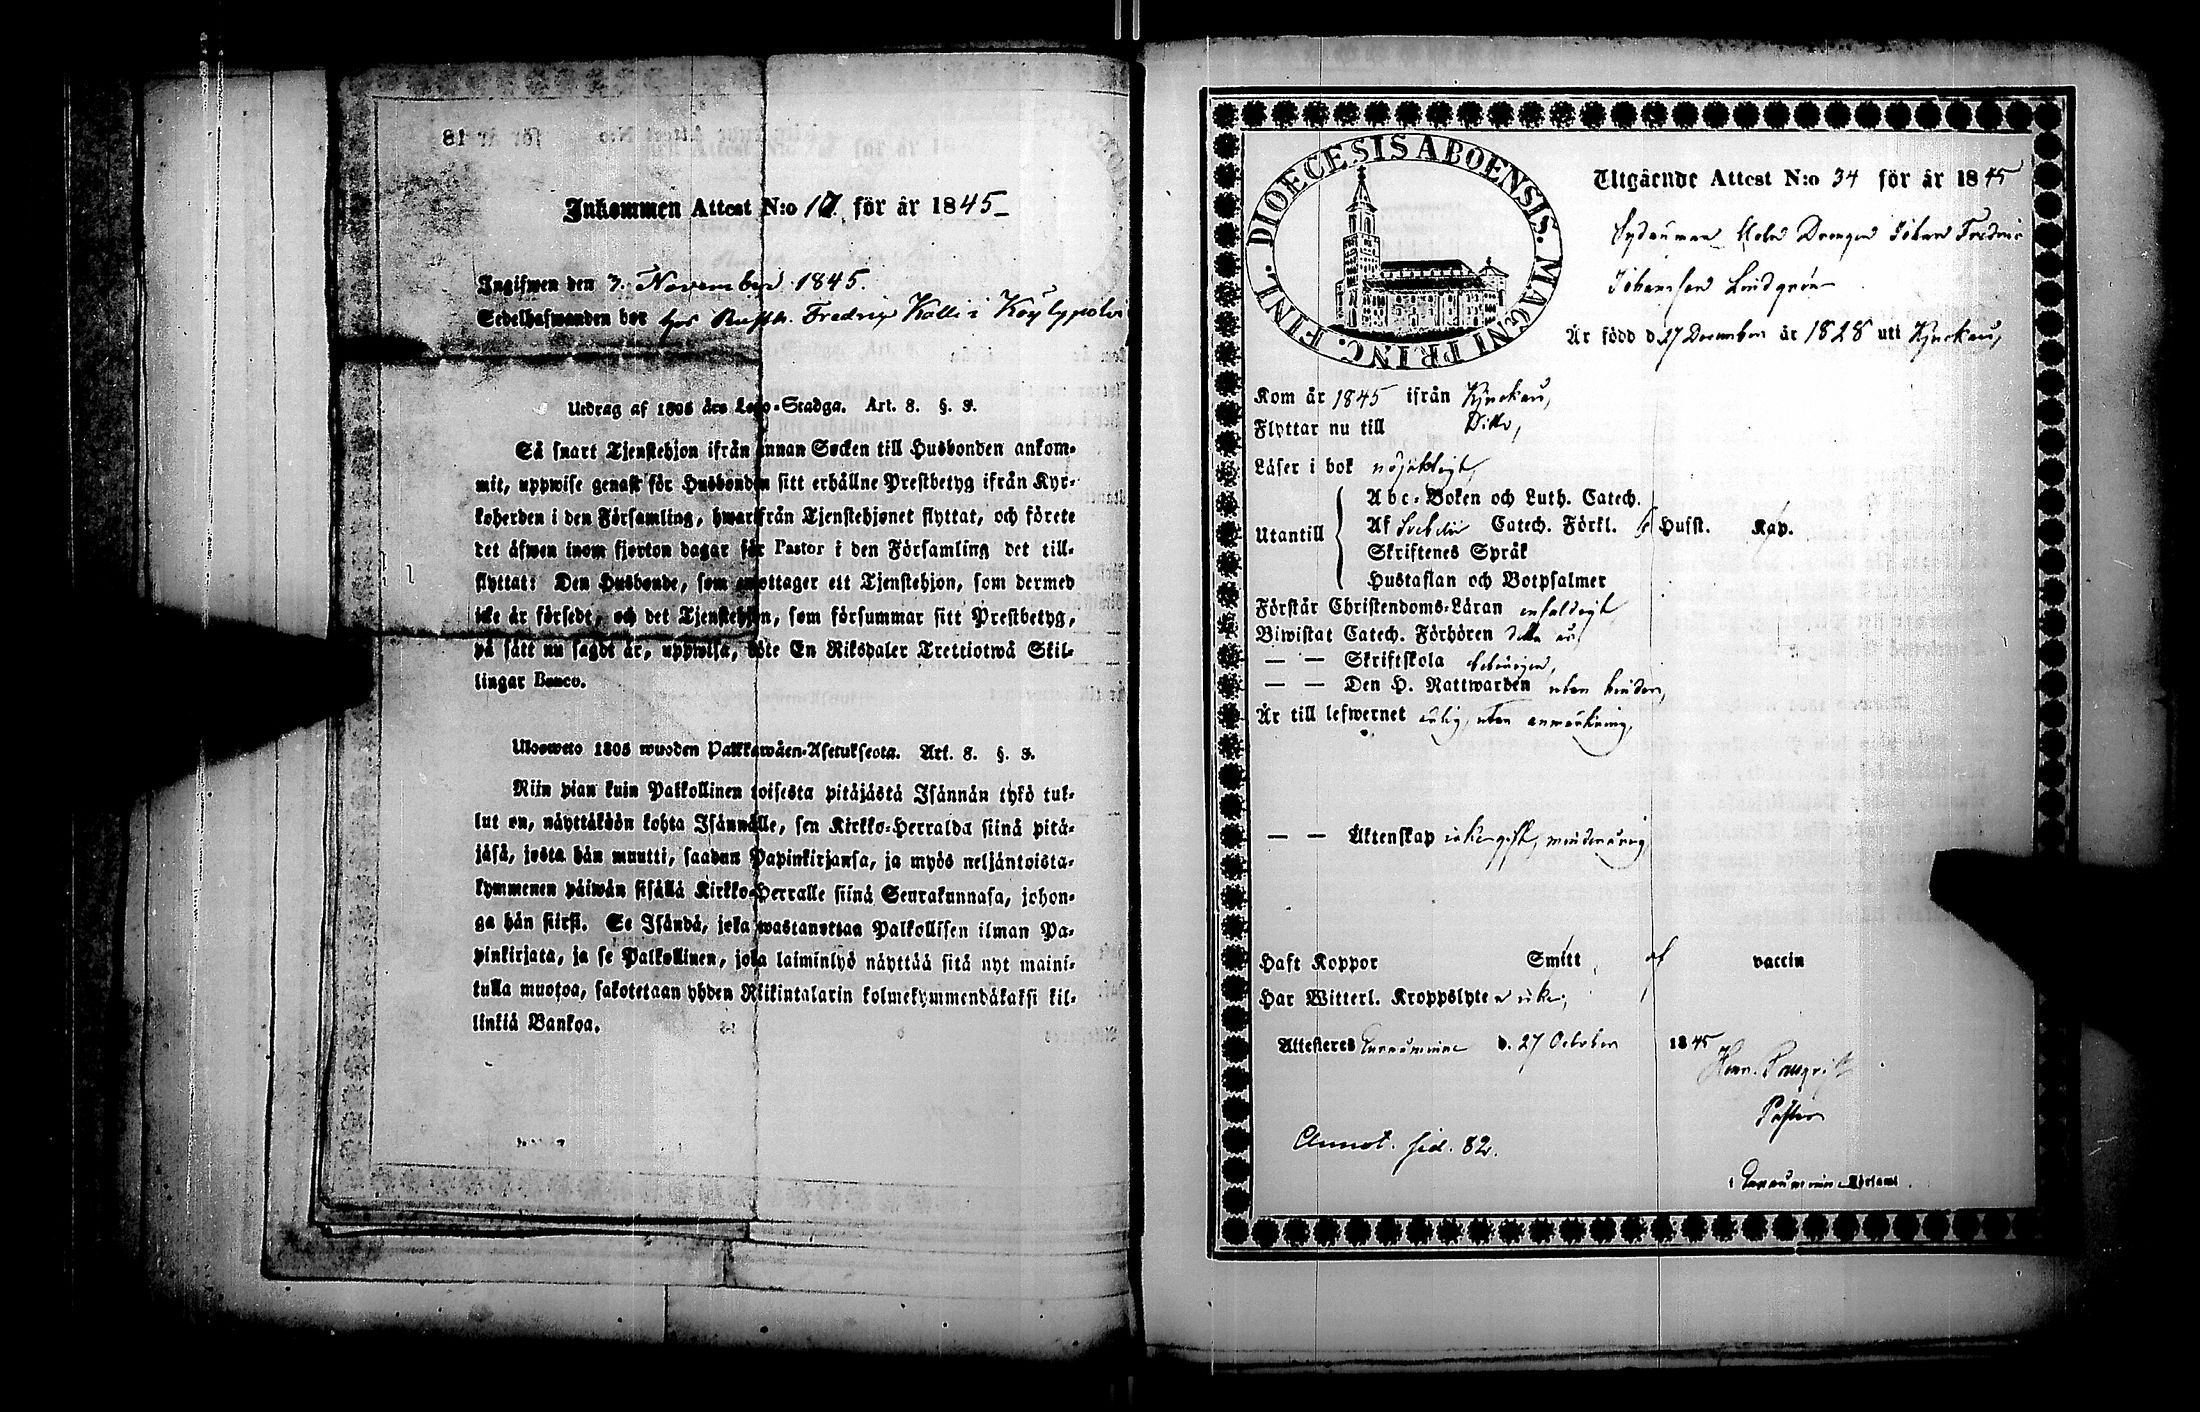 Inkommen Attest N:o 17. för år 1845
Ingifwen den 3. November 1845.
Sedelhafwanden bor hos Rusth. Fredrip Kalli i Köylypolvi
Utdrag af 1805 års Lego-Stadga. Art. 8. §. 3.
Så snart Tjenstehjon ifrån annan Socken till Husbonden ankom-
mit, uppwise genast för Husbonden sitt erhållne Prestbetyg ifrån Kyr-
koherden i den Församling, hwarifrån Tjenstehjonet flyttat, och förete
det åfwen inom fjorton dagar för Pastor i den Församling det till-
flyttat: Den Husbonde, som emottager ett Tjenstehjon, som dermed
icke är försedt, och det Tjenstehjon, som försummar sitt Prestbetyg,
på sätt nu sagdt är, uppwisa, böte En Riksdaler Trettiotwå Skil-
lingar Banco.
Ulosweto 1805 wuoden Palkkawäen-Asetuksesta. Art. 8. §. 3.
Niin pian kuin Palkollinen toisesta pitäjästä Isännän tykö tul-
lut on, näyttäköön kohta Isännälle, sen Kirkko-Herralda siinä pitä-
jäsä, josta hän muutti, saadun Papinkirjansa, ja myös neljäntoista-
kymmenen päiwän sisällä Kirkko-Herralle siinä Seurakunnasa, johon-
ga hän siirsi. Se Isändä, joka wastanottaa Palkollisen ilman Pa-
pinkirjata, ja se Palkollinen, joka laiminlyö näyttää sitä nyt maini-
tulla muotoa, sakotetaan yhden Riikintalarin kolmekymmendäkaksi kil-
linkiä Bankoa.
DIOECESIS ABOENSIS. MAGNI PRINC. FINL.
Utgående Attest N:o 34 för år 1845
Drengen Johan Fredric
Johansson Lindgrén
Är född d. 17 December år 1828 uti Kjuckau,
Kom år 1845 ifrån Kjuckau,
Flyttar nu till Ditto,
Läser i bok nöjaktigt,
Utantill
Abc-Boken och Luth. Catech.
Af Svebelii Catech. Förkl. 6 Hufst. Kap.
Skriftenes Språk
Hustaflan och Botpsalmer
Förstår Christendoms-Läran enfaldigt
Biwistat Catech. Förhören detta år,
— — Skriftskola behörigen,
— — Den H. Nattwarden utan hinder,
Är till lefwernet ärlig, utan anmärkning,
— — Äktenskap icke gift, minderårig
Haft Koppor Smitt af vaccin
Har Witterl. Kroppslyte icke,
Attesteres Euraåminne d. 27 October 1845
Pastor
i Euraåminne Församl.
Annot. sid. 82.